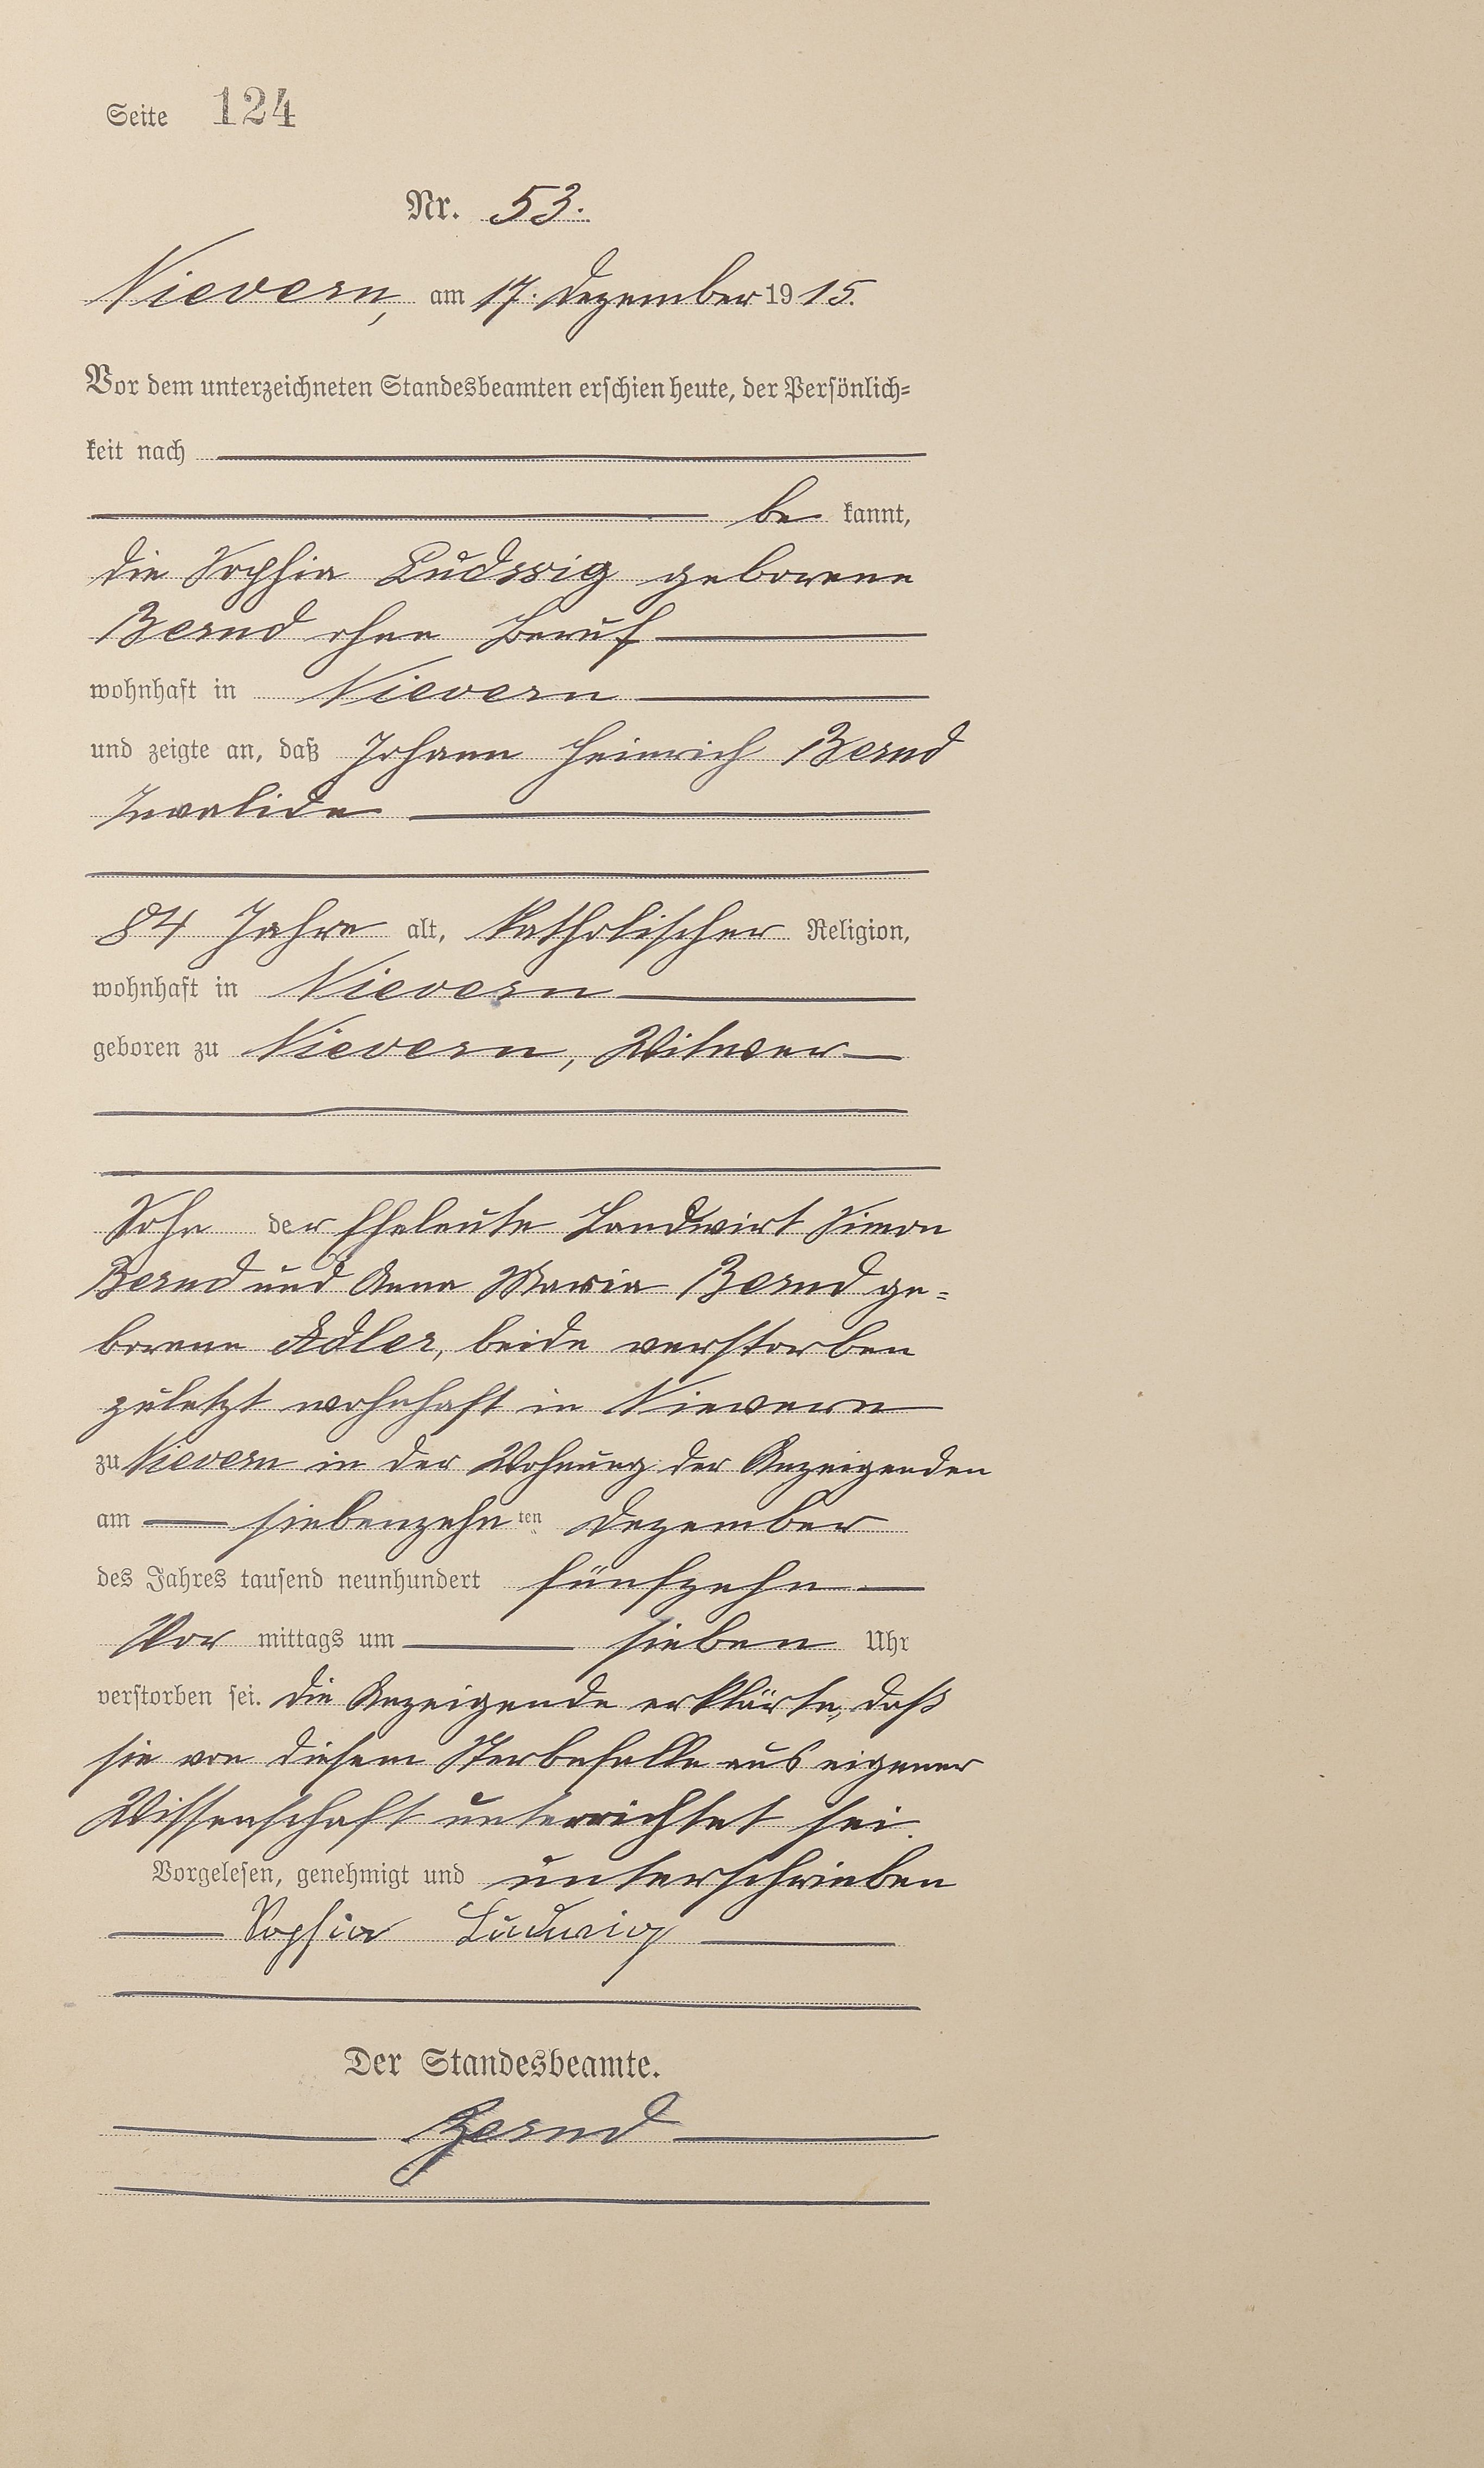 Seite 124
Nr. 53.
Nievern, am 17. Dezember 1915.
Vor dem unterzeichneten Standesbeamten erschien heute, der Persönlich=
keit nach
be kannt,
die Sophia Ludwig geborene
Bernd ohne Beruf
wohnhaft in Nievern
und zeigte an, daß Johann Heinrich Bernd
Invalide
84 Jahre alt, katholischer Religion,
wohnhaft in Nievern
geboren zu Nievern, Witwer
Sohn der Eheleute Landwirt Simon
Bernd und Anna Maria Bernd ge=
borene Adler, beide verstorben
zuletzt wohnhaft in Nievern
zu Nievern in der Wohnung der Anzeigenden
am siebenzehn ten Dezember
des Jahres tausend neunhundert fünfzehn
Vor mittags um sieben Uhr
verstorben sei. Die Anzeigende erklärte, daß
sie von diesem Sterbefalle aus eigener
Wissenschaft unterrichtet sei.
Vorgelesen, genehmigt und unterschrieben
Sophia Ludwig
Der Standesbeamte.
Bernd